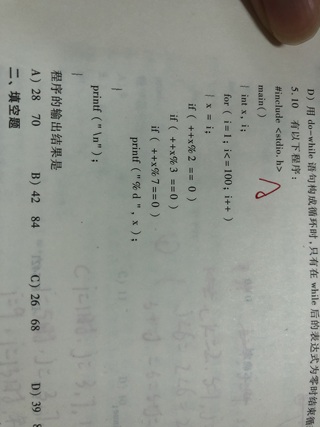 D) 用 do-while 语句构成循环时,只有在 while 后的表达式为零时结束循
5.10 有以下程序:
#include <stdio.h>
main()
{ int x, i;
for ( i=1; i<=100; i++ )
{ x = i;
if ( ++x%2 == 0 )
if ( ++x%3 ==0 )
if ( ++x%7==0 )
printf ("%d ", x );
}
printf ("\n");
}
程序的输出结果是
A) 28 70 B) 42 84 C) 26 68 D) 39
二、填空题